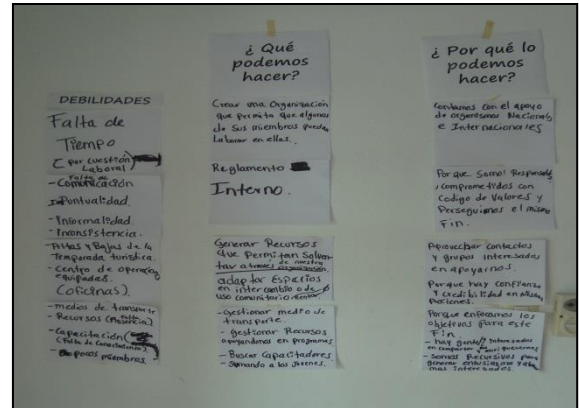 DEBILIDADES
Falta de
Tiempo
( por cuestión
Laboral)
Falta de
- Comunicación
- Puntualidad.
- Informalidad.
- Inconsistencia.
- Altas y Bajas de la
Temporada turística.
- Centro de operación
equipadas.
(oficinas).
- medios de transporte
- Recursos
- Capacitación
(Falta de Conocimientos).
- pocos miembros.
¿ Qué
podemos
hacer?
Crear una Organización
que permita que algunos
de sus miembros puedan
Laborar en ellas.
Reglamento
Interno.
Generar Recursos
que Permitan Solven
tar a través de nuestra
organización.
adaptar Espacios
en intercambio o de
uso comunitario
- Gestionar medio de
transporte.
- gestionar Recursos
apoyandonos en programas
- Buscar Capacitadores
- Sumando a los Jovenes.
¿ Por qué lo
podemos
hacer?
Contamos con el apoyo
de organismos Nacionales
e Internacionales
Por que Somos Responsables
, comprometidos con
Codigo de Valores y
Perseguimos el mismo
Fin.
Aprovechar contactos
y grupos interesados
en apoyarnos.
Porque hay Confianza
y credibilidad en
Porque enfocamos los
objetivos para este
Fin.
- hay gente interesados
en compartir y enriquecernos
- Somos Recursivos para
generar entusiasmo y
mas Interesados.